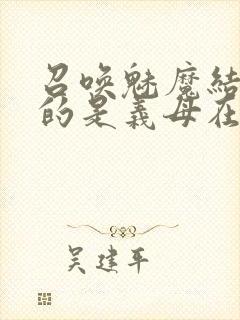 召唤魅魔结
的是义母在
吴建平